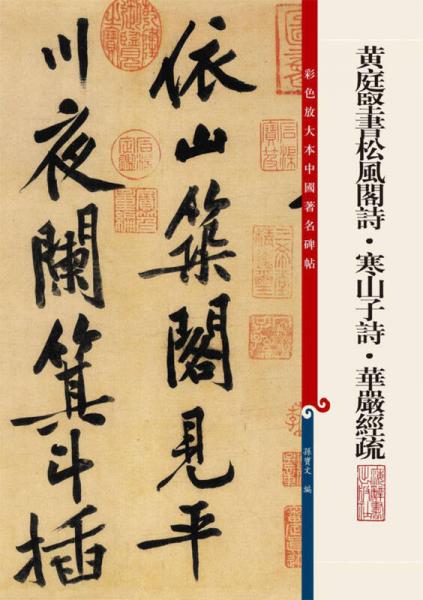 黄庭堅書松風閣詩・寒山子詩・華嚴經疏
彩色放大本中國著名碑帖
孫寶文 編
依山築閣見平
川夜闌箕斗插